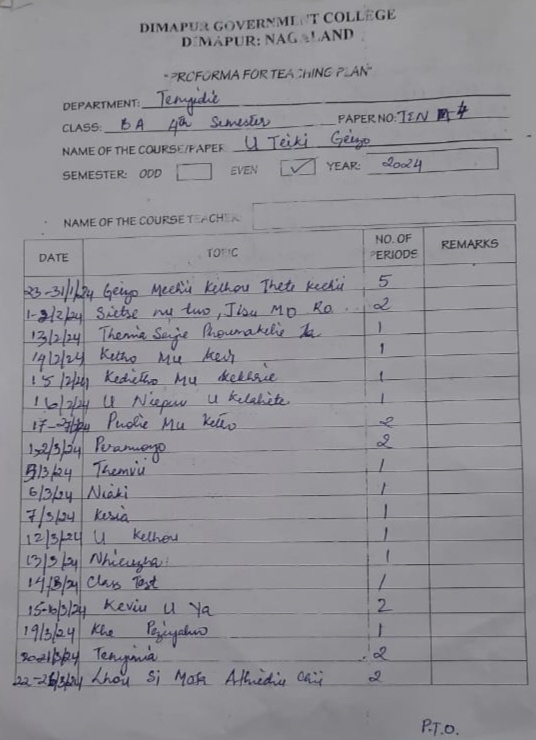 DIMAPUR GOVERNMENT COLLEGE
DIMAPUR: NAGALAND
"PROFORMA FOR TEACHING PLAN"
DEPARTMENT: Tenyidie
CLASS: BA 4th Semester PAPER NO: TEN 4
NAME OF THE COURSE/PAPER U Teiki Geizo
SEMESTER: ODD EVEN ✓ YEAR: 2024
NAME OF THE COURSE TEACHER
DATE TOPIC NO. OF PERIODS REMARKS
23-31/1/24 Geizo Mechü Kelhou Thete Kechü 5
1-2/2/24 Sietse mu two, Mo Ro 2
13/2/24 1
14/2/24 Ketho Mu 1
15/2/24 Mu 1
16/2/24 U Niepu U 1
Mu 2
1-2/3/24 Peramonyo 2
5/3/24 Themvü 1
6/3/24 Niaki 1
7/3/24 Kesia 1
12/3/24 U Kelhou 1
13/3/24 1
14/3/24 Class Test 1
15-16/3/24 Keviu U Ya 2
19/3/24 Khe 1
20-21/3/24 Tenyimia 2
Lhou Si Mota 2
P.T.O.